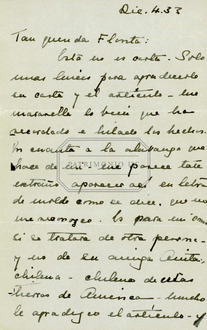 Dic. 4.53
Tan querida Florita:
Esta no es carta. Solo
unas líneas para agradecerle
su carta y el artículo - me
maravilla lo bien que ha
recordado e hilado los hechos.
En cuanto a la que
hace de mí - me parece tan
extraño aparecer así en letra
de molde como se dice, que no
me reconozco. Es para mí como
si se tratara de otra persona
y no de su amiga Anita,
chilena - chilena de estas
tierras de América - mucho
le agradezco el artículo - y
PATRIMONIO